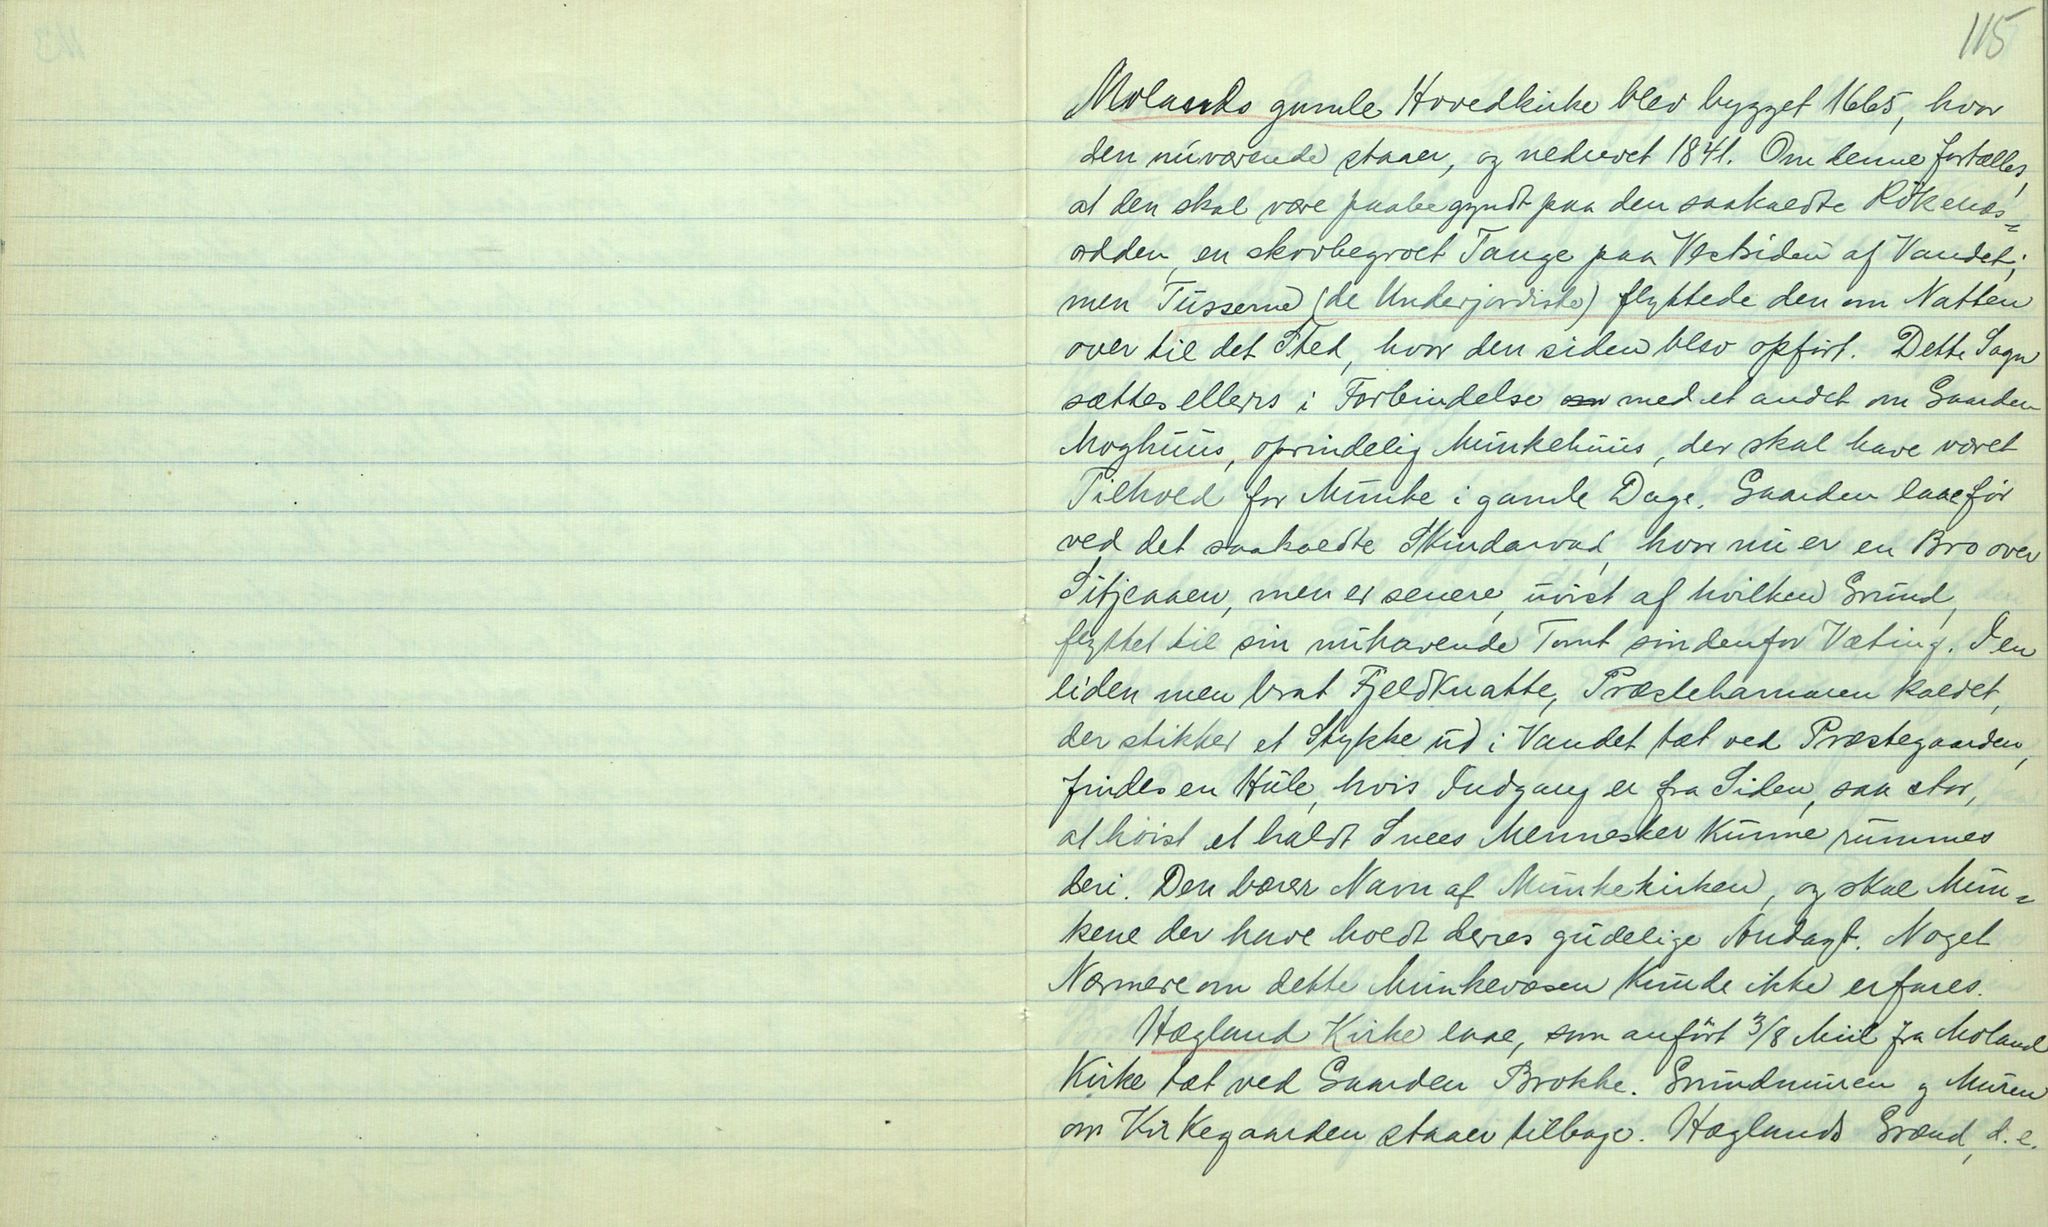 115
Molands gamle Hovedkirke blev bygget 1665, hvor
den nuværende staaer, og nedrevet 1841. Om denne fortælles,
at den skal være paabegyndt paa den saakaldte Rökenæs=
odden, en skovbegroet Tange paa Vestsiden af Vandet;
men Tusserne (de Underjordiske) flyttede den om Natten
over til det Sted, hvor den siden blev opført. Dette Sagn
sættes ellers i Forbindelse om med et andet om Gaarden
Moghuus, oprindelig Munkehuus, der skal have været
Tilhold for Munke i gamle Dage. Gaarden laae før
ved det saakaldte Skindarvad, hvor nu er en Bro over
men er senere, uvist af hvilken Grund,
flyttet til sin nuhavende Tomt søndenfor Væting. I en
liden men brat Fjeldknatte, Præstehamaren kaldet,
der stikker et Stykke ud i Vandet tæt ved Præstegaarden,
findes en Hule, hvis Indgang er fra Siden, saa stor,
at høist et halvt Snees Mennesker kunne rummes
deri. Den bærer Navn af Munkekirken, og skal Mun=
kene der have holdt deres gudelige Andagt. Noget
Nærmere om dette Munkevæsen kunde ikke erfares.
Hægland Kirke laae, som anført 3/8 Miil fra Moland
Kirke tæt ved Gaarden Brokke. Grundmuren og Muren
om Kirkegaarden staaer tilbage. Hæglands Grænd, d.e.